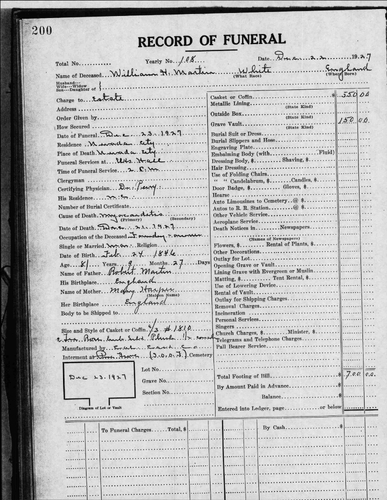 200
RECORD OF FUNERAL
Total No. Yearly No. 188 Date Dec. 22 1927
Name of Deceased William H. Martin White England
(What Race) (Where Born)
Husband—
Wife—Widow—
Son—Daughter of
Charge to Estate
Address
Order Given by
How Secured
Date of Funeral Dec 23 1927
Residence Nevada City
Place of Death Nevada City
Funeral Services at Hall
Time of Funeral Service 2 P.M
Clergyman
Certifying Physician Dr.
His Residence n.c.
Number of Burial Certificate
Cause of Death Myocarditis
(Primary) (Secondary)
Date of Death Dec. 22 1927
Occupation of the Deceased Foundry
Single or Married Religion
Date of Birth Feb 24 1846
Age 81 Years Months 27 Days
Name of Father Robert Martin
His Birthplace England
Name of Mother Mary Harper
(Maiden Name)
Her Birthplace England
Body to be Shipped to
Size and Style of Casket or Coffin 6/3 # 1810
Plush
Manufactured by
Interment at Pine Grove (I.O.O.F.) Cemetery
Dec 23. 1927
Diagram of Lot or Vault
Lot No.
Grave No.
Section No.
Casket or Coffin $ 550 00
Metallic Lining
(State Kind)
Outside Box
(State Kind)
Grave Vault 150 00
(State Kind)
Burial Suit or Dress
Burial Slippers and Hose
Engraving Plate
Embalming Body (with Fluid)
Dressing Body, $ Shaving, $
Hair Dressing
Use of Folding Chairs
" " Candelabrum, $ Candles, $
Door Badge, $ Gloves, $
Hearse
Auto Limousines to Cemetery @ $
Autos to R. R. Station @ $
Other Vehicle Service
Aeroplane Service
Death Notices in Newspapers
(Names of Newspapers)
Flowers, $ Rental of Plants, $
Other Decorations
Outlay for Lot
Opening Grave or Vault
Lining Grave with Evergreen or Muslin
Rental of Tent, $ Matting, $
Use of Lowering Device
Rental of Vault
Outlay for Shipping Charges
Removal Charges
Incineration
Personal Services
Singers
Church Charges, $ Minister, $
Telegrams and Telephone Charges
Pall Bearer Service
Total Footing of Bill $ 700 00
By Amount Paid in Advance
Balance
Entered into Ledger, page or below
To Funeral Charges. Total $
By Cash $